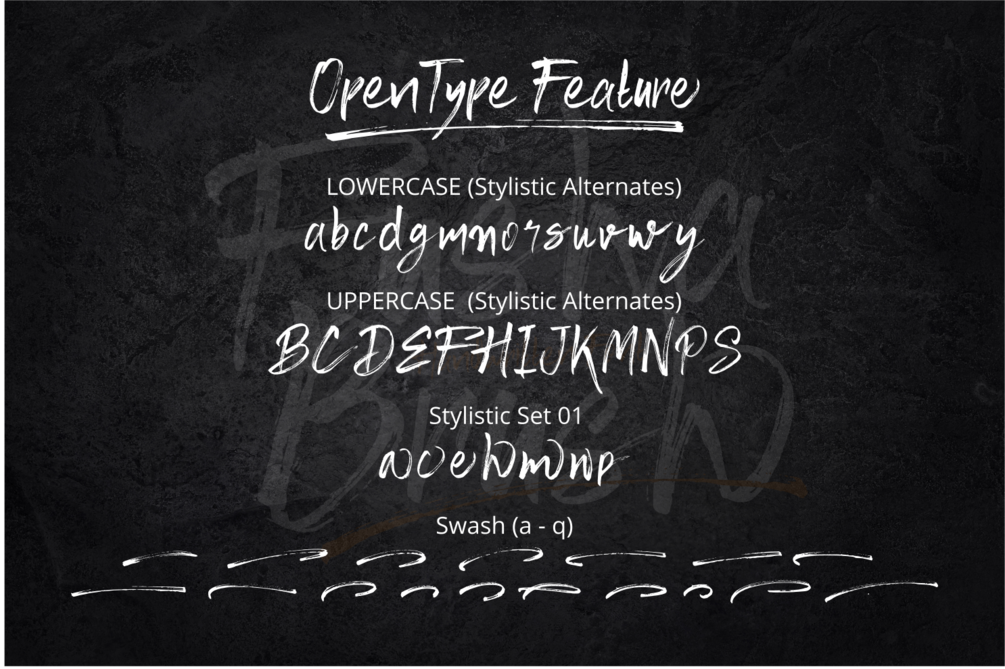 OpenType Feature
LOWERCASE (Stylistic Alternates)
abcdgmnorsuvwy
UPPERCASE (Stylistic Alternates)
BCDEFHIJKMNPS
Stylistic Set 01
aocehmnp
Swash (a - q)